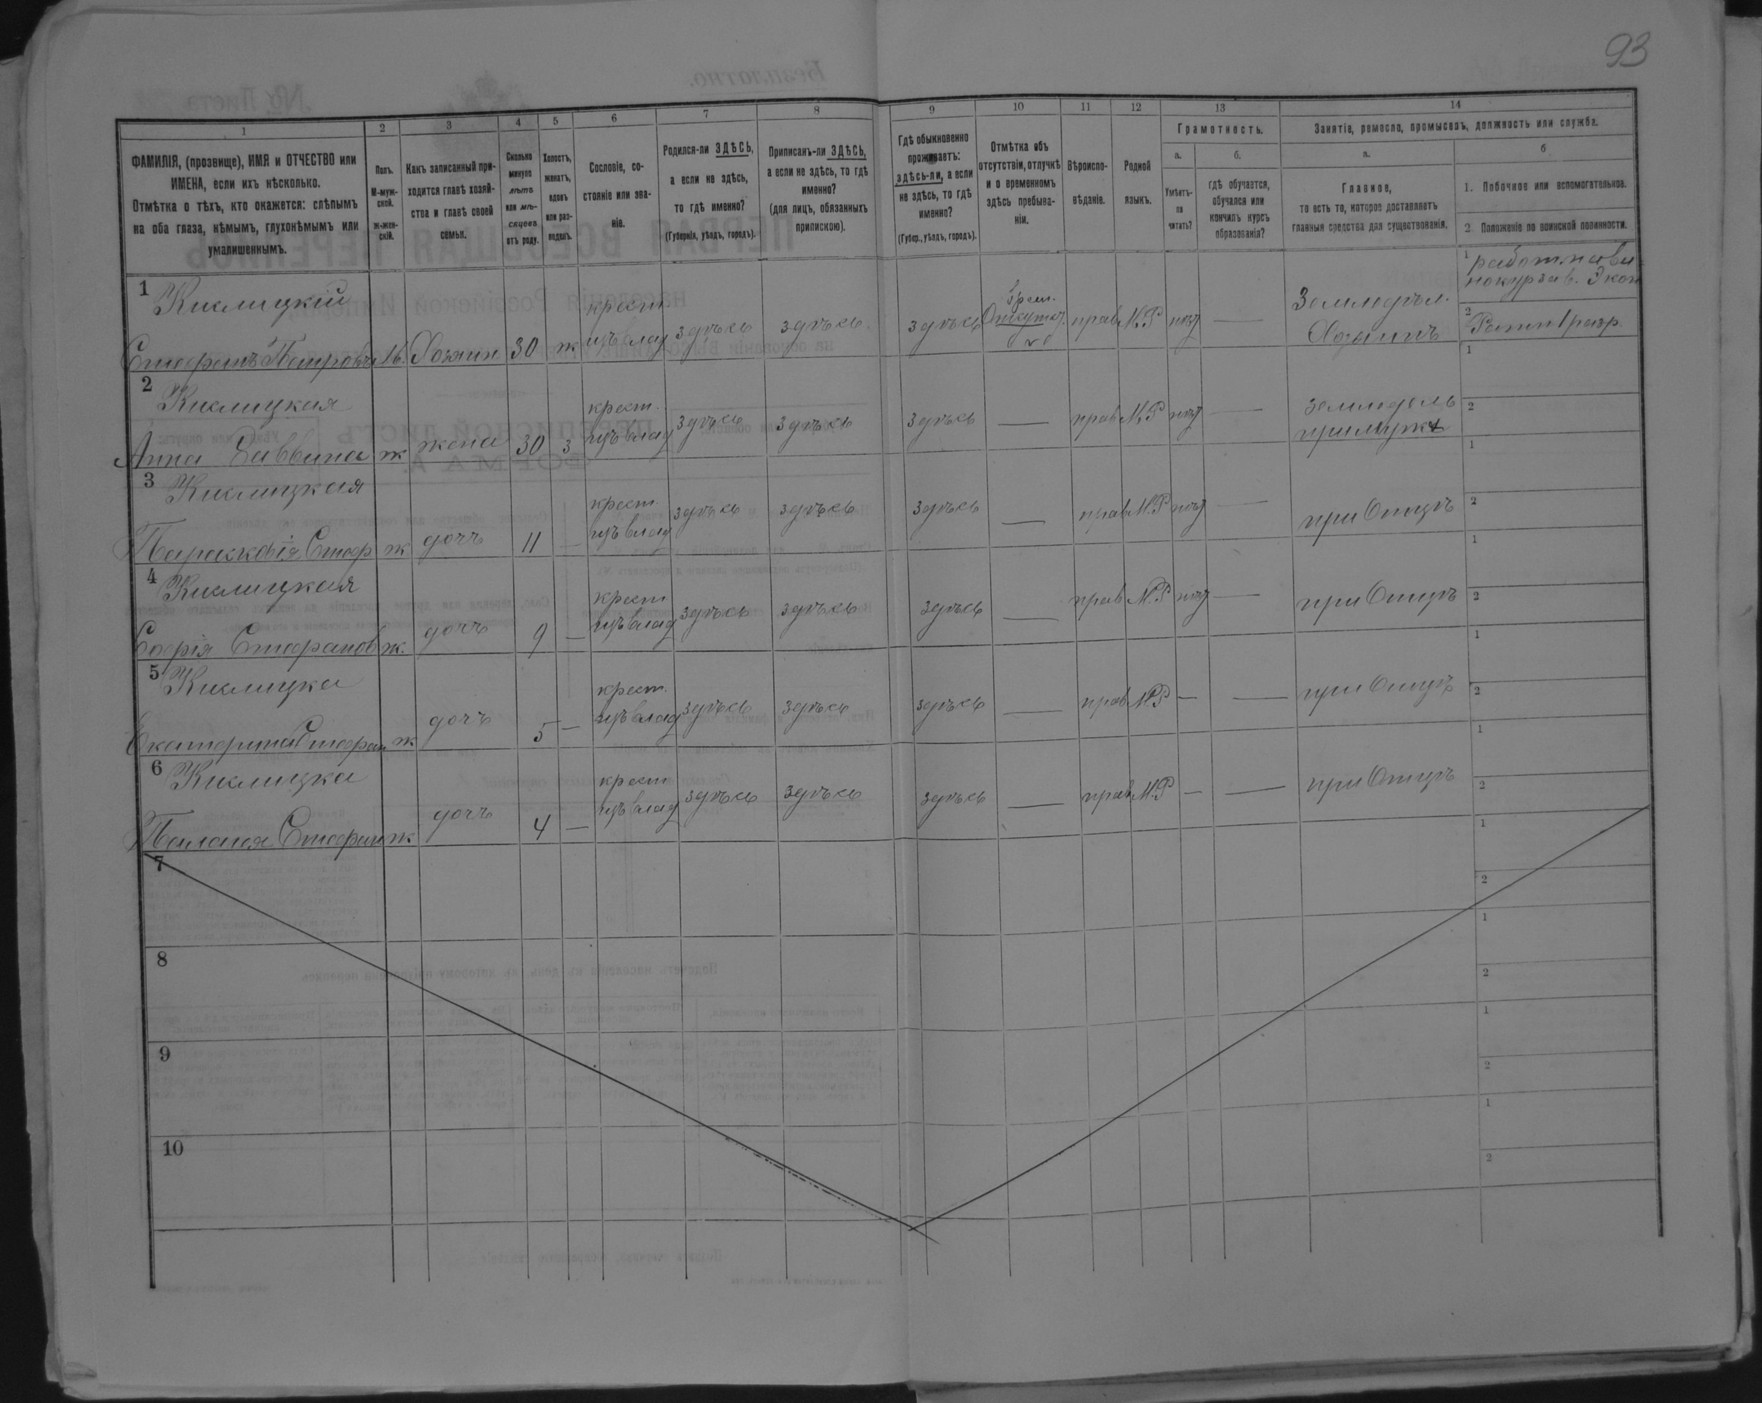 93
1 2 3 4 5 6 7 8 9 10 11 12 13 14
ФАМИЛІЯ, (прозвище), ИМЯ и ОТЧЕСТВО или
ИМЕНА, если ихъ нѣсколько.
Отмѣтка о тѣхъ, кто окажется: слѣпымъ
на оба глаза, нѣмымъ, глухонѣмымъ или
умалишеннымъ.
Полъ.
М-муж-
ской.
Ж-жен-
скій.
Какъ записанный при-
ходится главѣ хозяй-
ства и главѣ своей
семьи.
Сколько
минуло
лѣтъ
или мѣ-
сяцевъ
отъ роду.
Холостъ,
женатъ,
вдовъ
или раз-
веденъ.
Сословіе, со-
стояніе или зва-
ніе.
Родился-ли ЗДѢСЬ,
а если не здѣсь,
то гдѣ именно?
(Губернія, уѣздъ, городъ).
Приписанъ-ли ЗДѢСЬ,
а если не здѣсь, то гдѣ
именно?
(для лицъ, обязанныхъ
припиской).
Гдѣ обыкновенно
проживаетъ:
здѣсь-ли, а если
не здѣсь, то гдѣ
именно?
(Губер., уѣздъ, городъ).
Отмѣтка объ
отсутствіи, отлучкѣ
и о временномъ
здѣсь пребыва-
ніи.
Вѣроиспо-
вѣданіе.
Родной
языкъ.
Грамотность.
а.
Умѣетъ-
ли
читать?
б.
гдѣ обучается,
обучался или
кончилъ курсъ
образованія?
Занятіе, ремесло, промыселъ, должность или служба.
а.
Главное,
то есть то, которое доставляетъ
главныя средства для существованія.
б
1. Побочное или вспомогательное.
2. Положеніе по воинской повинности.
1 Кислицкій крест. здѣсь здѣсь здѣсь врем. Отсутст. прав М.Р нѣт — Земледѣл. 1
Стефанъ Петровъ М. Хозяин 30 ж изъ влад Хозяинъ 2 Ратн 1 разр.
2 Кислицкая крест. здѣсь здѣсь здѣсь — прав М.Р нѣт — земледѣль 1
Анна Саввина ж жена 30 з изъ влад при мужѣ 2
3 Кислицкая крест здѣсь здѣсь здѣсь — прав М.Р нѣт — при Отцѣ 1
Параскевія Стеф ж дочь 11 — изъ влад 2
4 Кислицкая крест здѣсь здѣсь здѣсь — прав М.Р нѣт — при Отцѣ 1
Софія Стефанов ж дочь 9 — изъ влад 2
5 Кислицка крест. здѣсь здѣсь здѣсь — прав М.Р — — при Отцѣ 1
Екатерина Стефан ж дочь 5 — изъ влад 2
6 Кислицка крест здѣсь здѣсь здѣсь — прав М.Р — — при Отцѣ 1
Пелагея Стефан ж дочь 4 — изъ влад 2
7 1
2
8 1
2
9 1
2
10 1
2